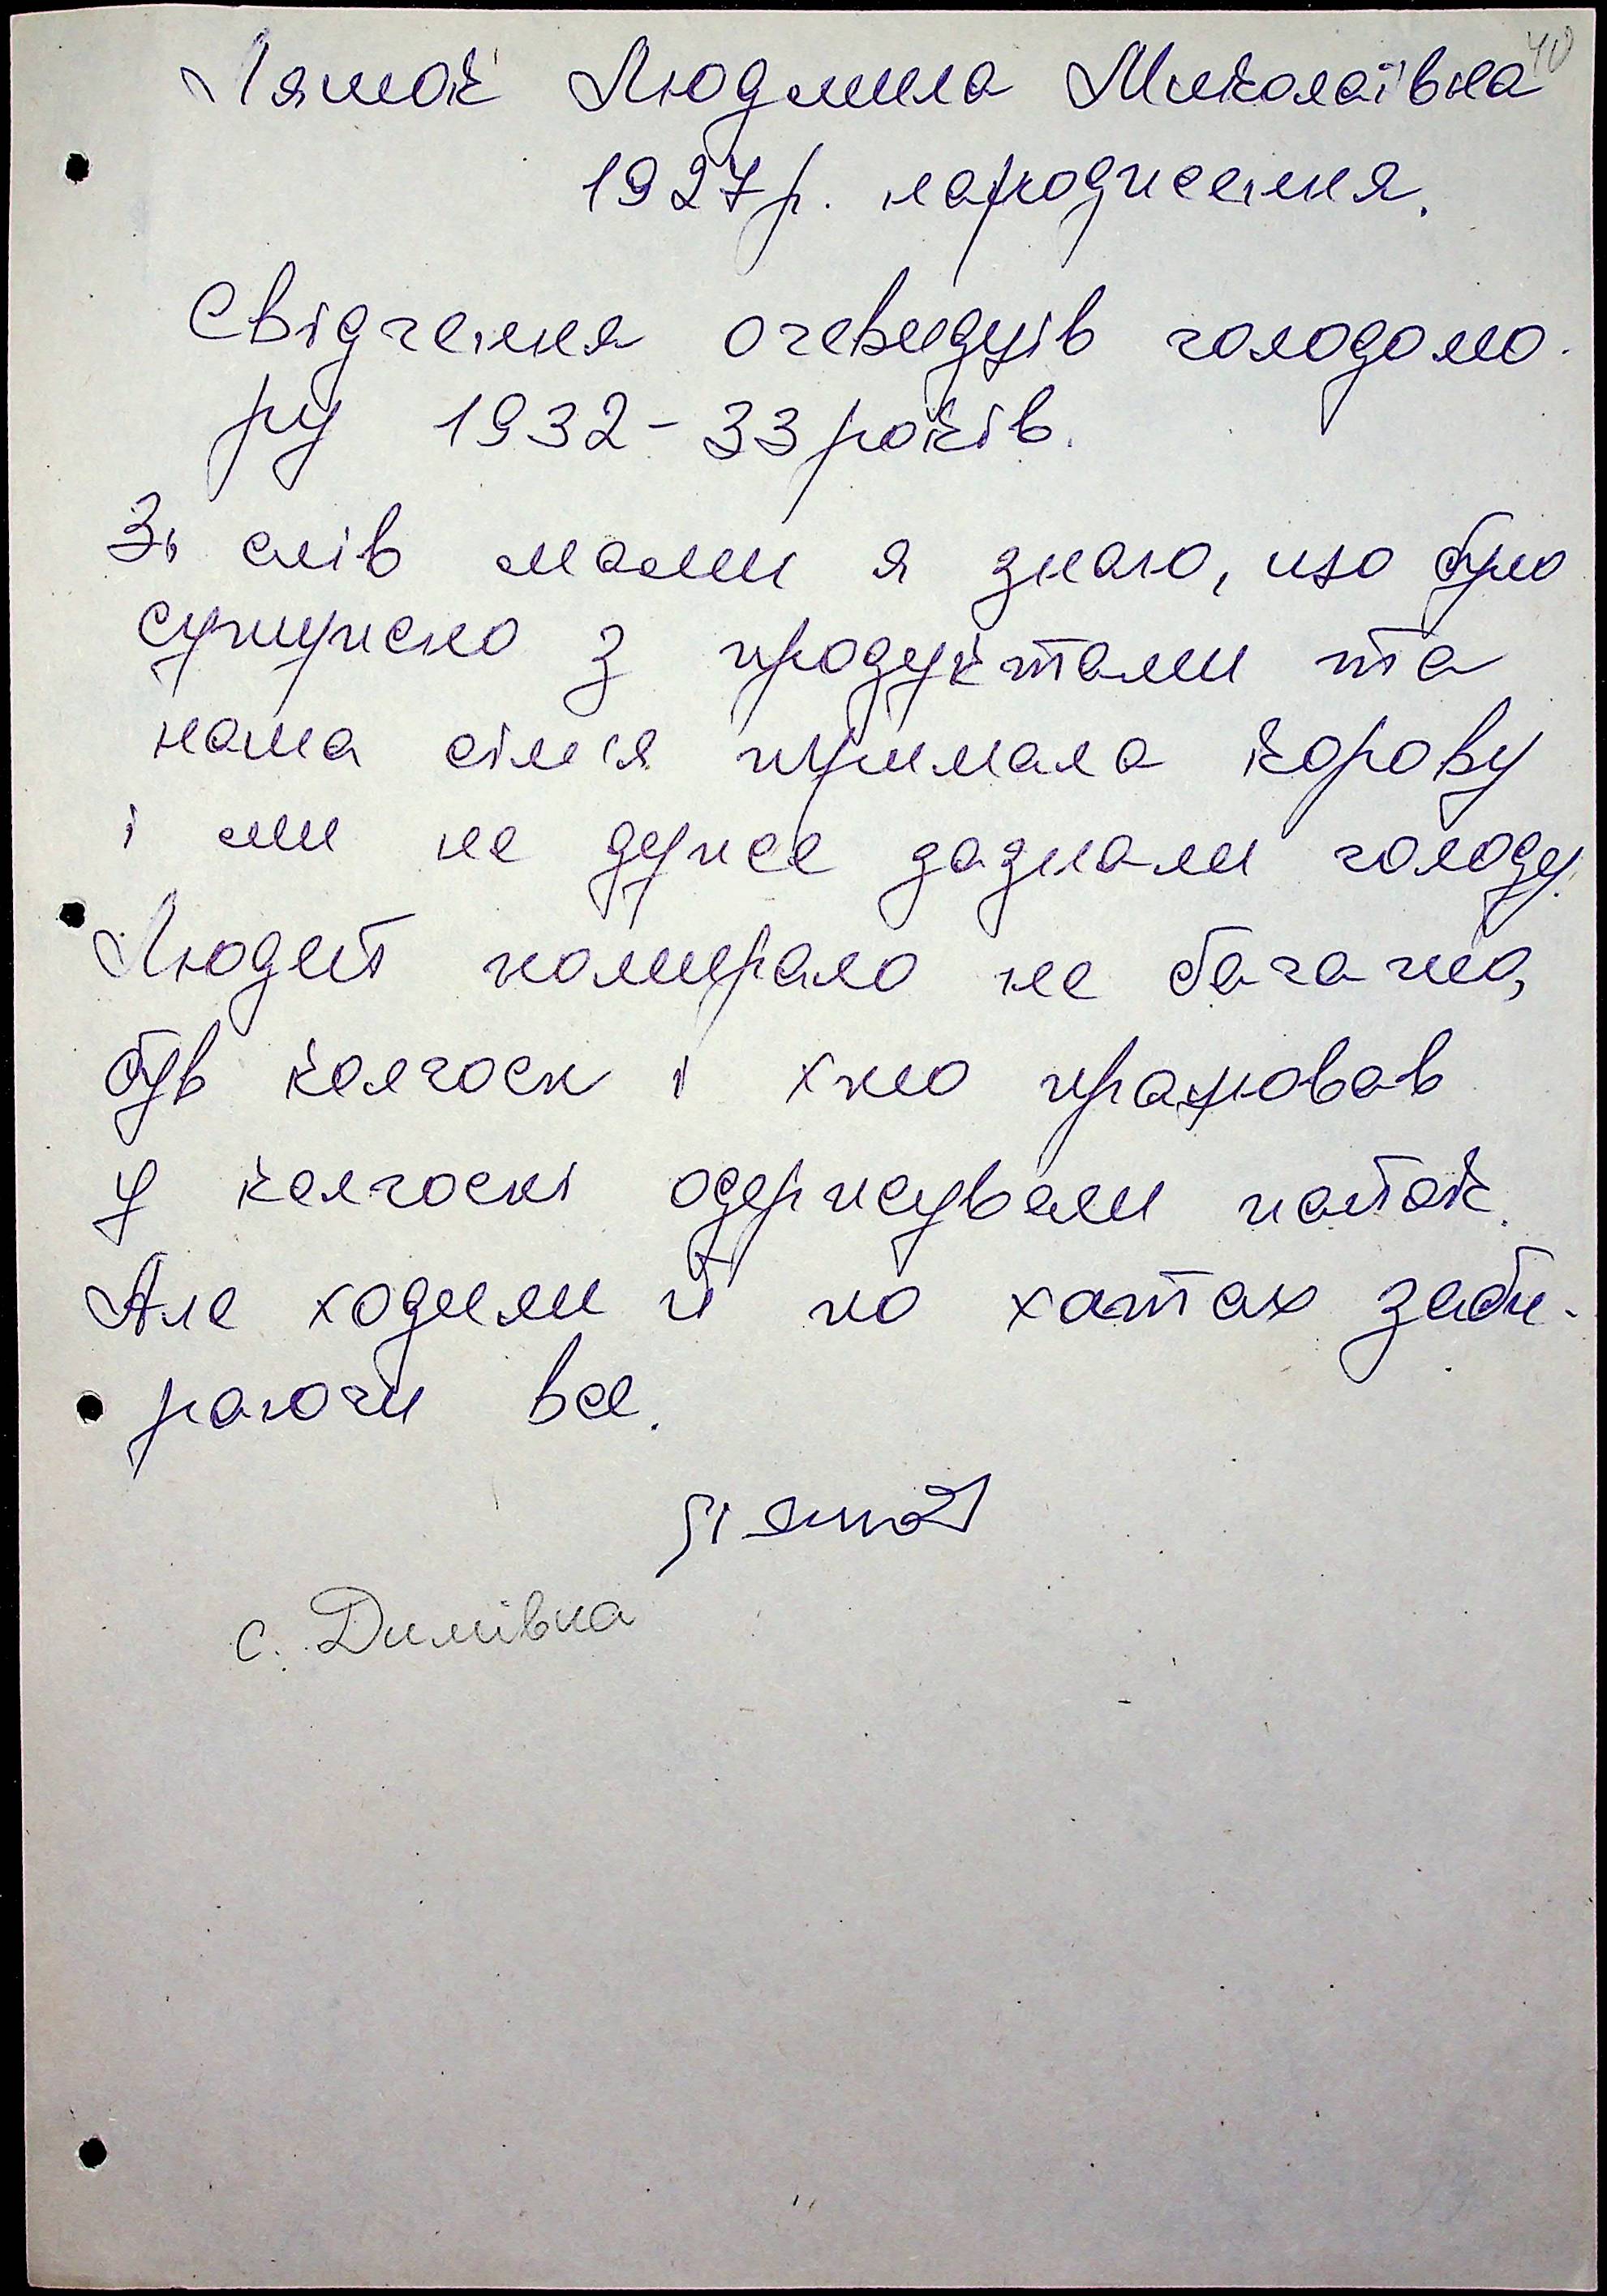 40
Ляшок Людмила Миколаївна
1927 р. народження.
Свідчення очевидців голодомо-
ру 1932-33 років.
Зі слів мами я знаю, що було
сутужно з продуктами та
наша сім'я тримала корову
і ми не дуже зазнали голоду.
Людей помирало не багато,
був колгосп і хто працював
у колгоспі одержували пайок.
Але ходили й по хатах заби-
раючи все.
с. Димівка